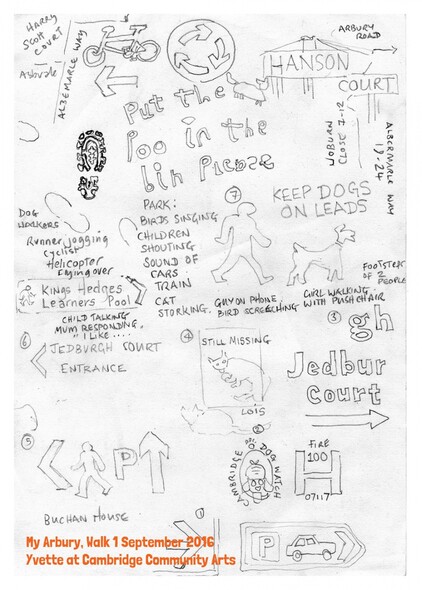 HARRY
SCOTT
COURT
Ashvale
ALBEMARLE WAY
ARBURY
ROAD
HANSON
COURT
Put the
Poo in the
bin Please
WOBURN
CLOSE 7-12
ALBERMARLE WAY
19-24
7
KEEP DOGS
ON LEADS
DOG
WALKERS
Runner jogging
cyclist
Helicopter
flying over
PARK:
BIRDS SINGING
CHILDREN
SHOUTING
SOUND OF
CARS
TRAIN
CAT
STORKING, GUY ON PHONE,
BIRD SCREECHING
GIRL WALKING
WITH PUSHCHAIR
FOOTSTEPS
OF 2
PEOPLE
Kings Hedges
Learners Pool
CHILD TALKING
MUM RESPONDING,
"I LIKE ....
6
JEDBURGH COURT
ENTRANCE
4
STILL MISSING
LOIS
3
gh
Jedbur
Court
2
CAMBRIDGE DOG WATCH
FIRE
100
H
07117
5
P
BUCHAN HOUSE
1
P
My Arbury, Walk 1 September 2016
Yvette at Cambridge Community Arts